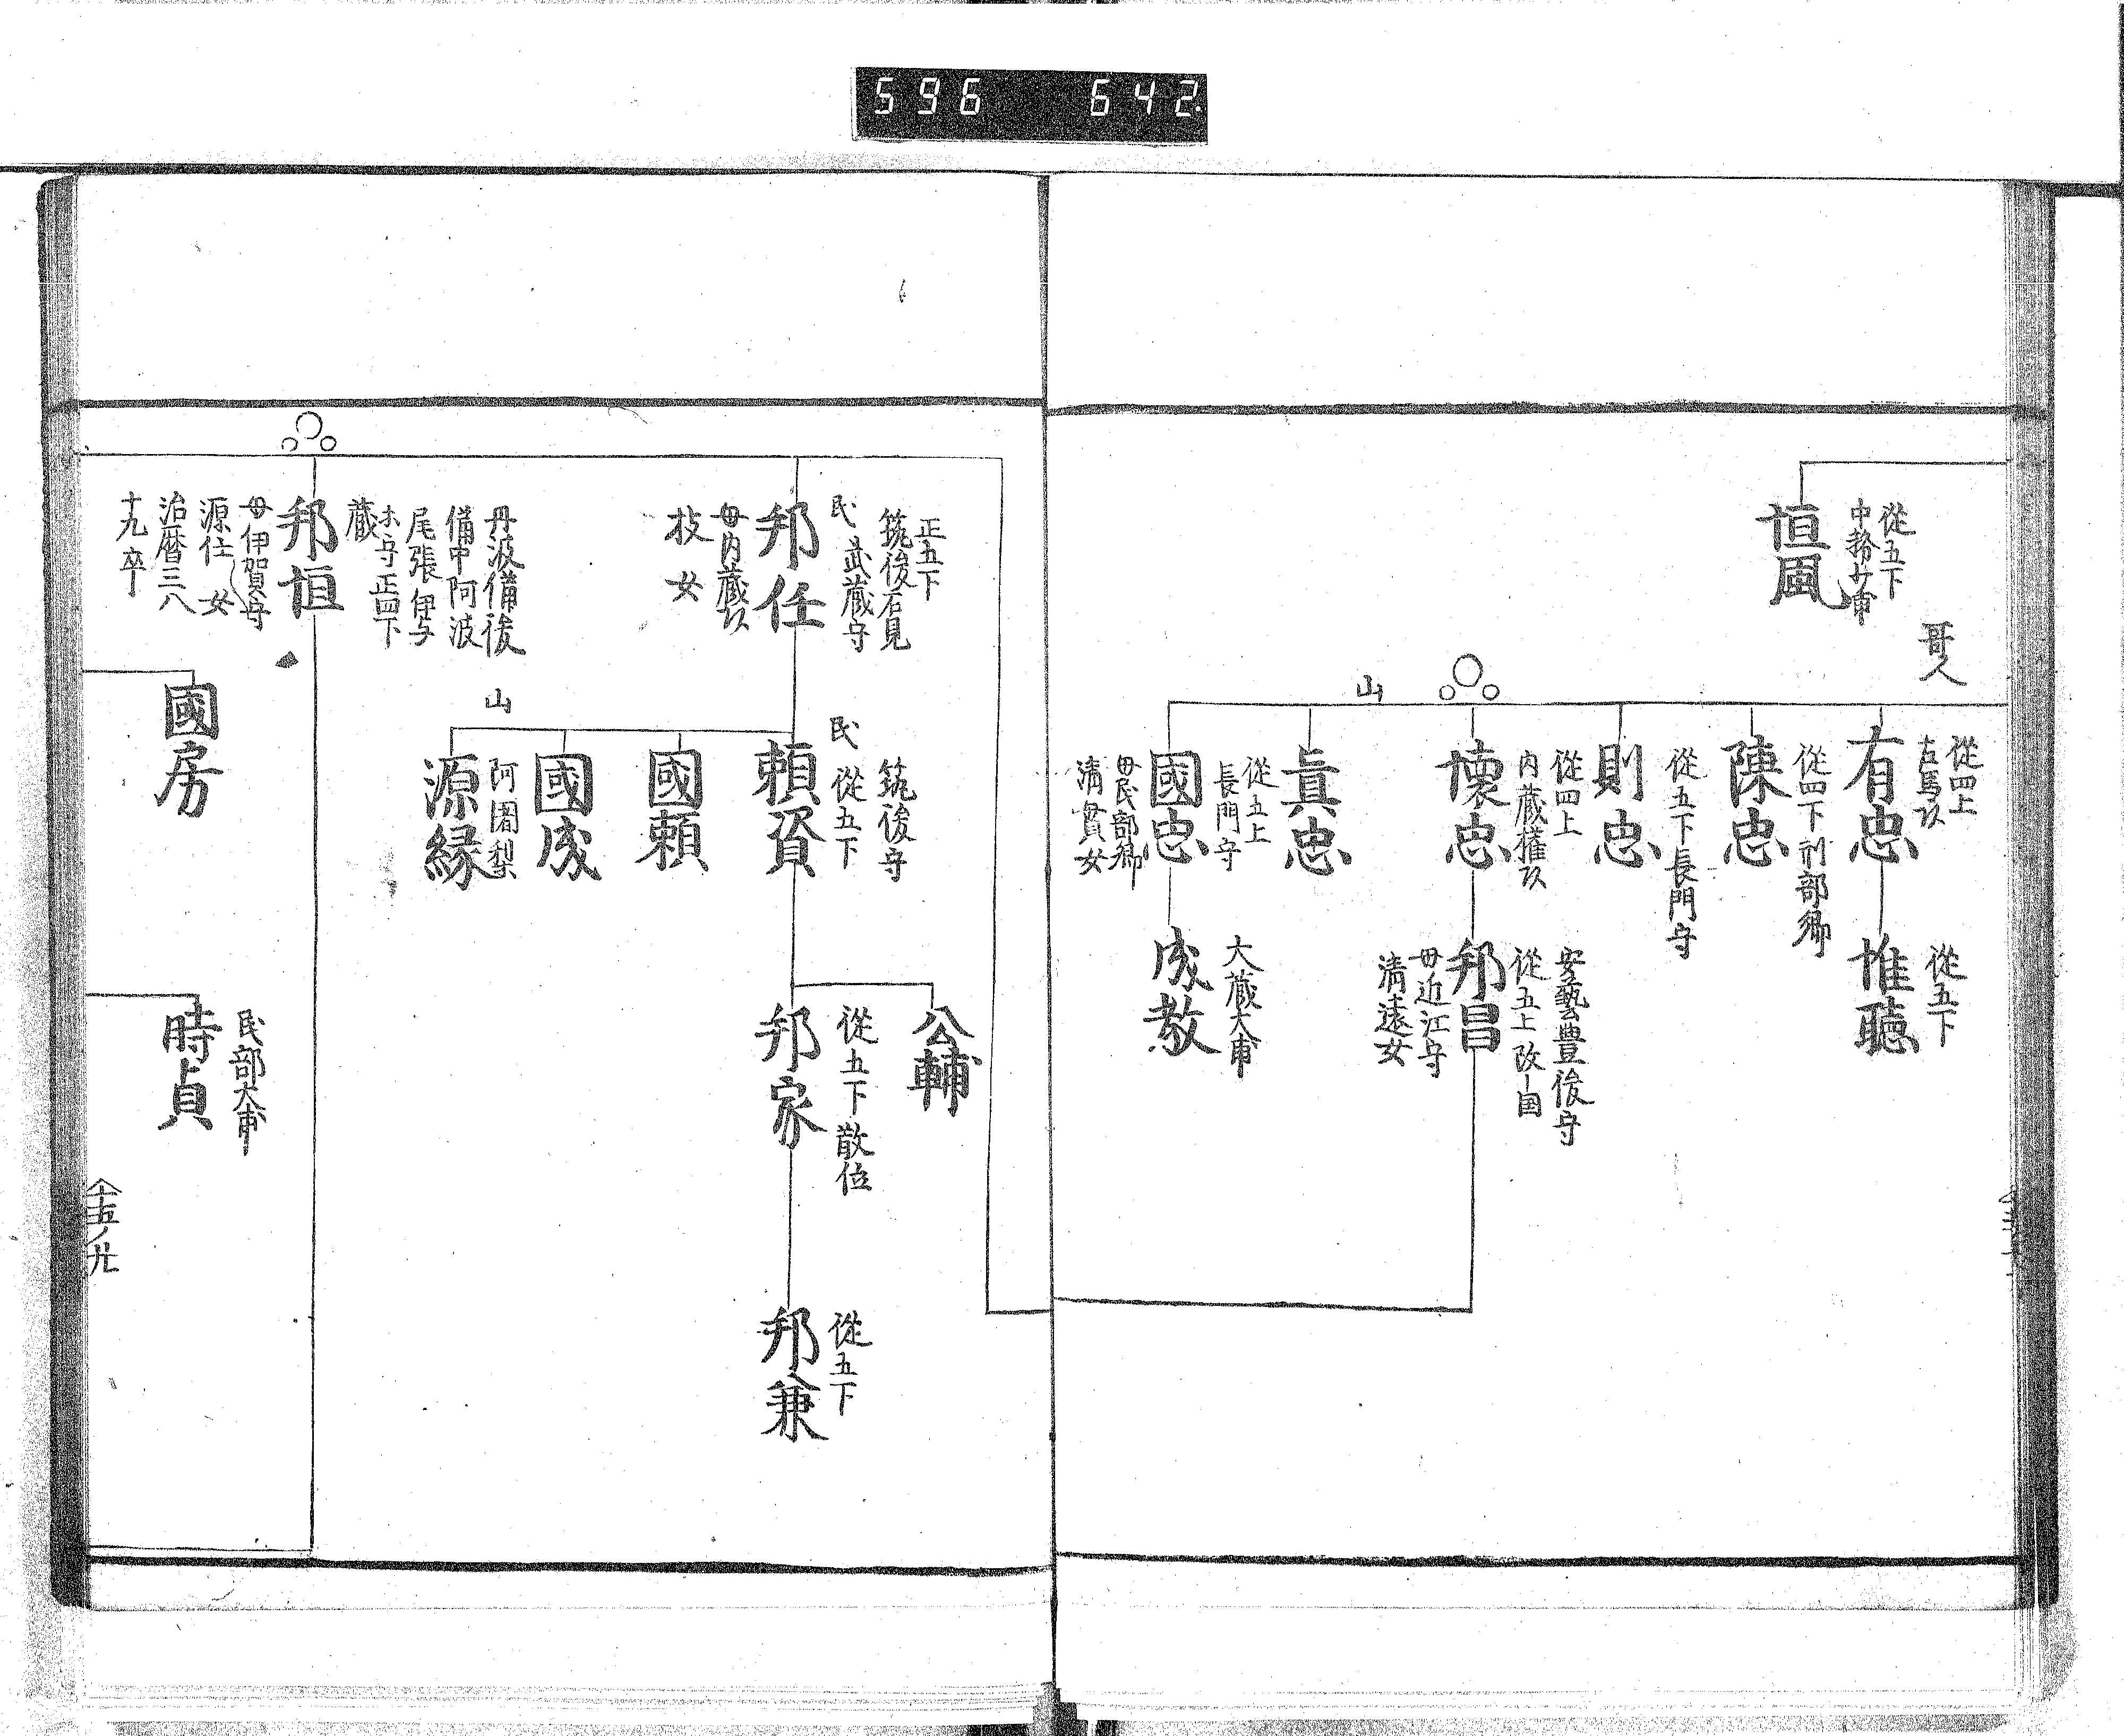 596 642
從五下
中務少甫
恒風
哥人
從四上
右馬頭
有忠
從五下
惟聴
從四下刑部卿
陳忠
從五下長門守
則忠
從四上
内蔵權頭
懐忠
安藝豊後守
從五上改國
邦昌
母近江守
清遠女
山
眞忠
從五上
長門守
國忠
母民部卿
清貫女
大蔵大甫
成教
正五下
筑後石見
民 武蔵守
邦任
母内蔵頭
枝女
筑後守
民 從五下
頼資
公輔
從五下散位
邦家
從五下
邦兼
國頼
國成
山
阿闍梨
源縁
丹波備後
備中阿波
尾張伊与
木守正四下
蔵
邦恒
母伊賀守
源仕女
治暦三八
十九卒
國房
民部大甫
時貞